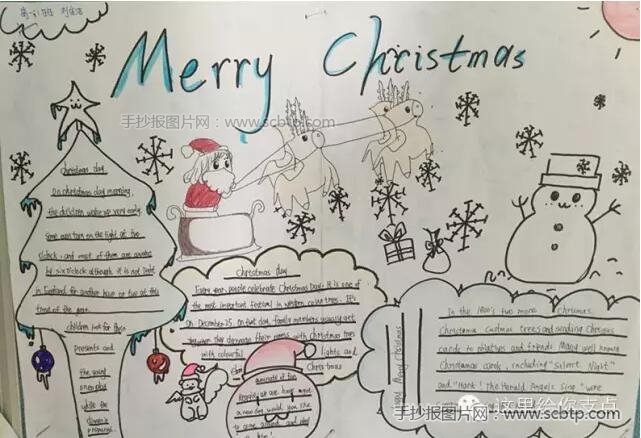 Merry Christmas
手抄报图片网：www.scbtp.com
christmas day
on christmas day morning,
the children wake up very early
Some even turn on the light at two
o'clock. and most of them are awake
by six o'clock although it is not light
in Scotland for another hour or two at this
time of the year.
children look for their
presents and
the young
ones play
while the
dinner is
prepared.
christmas day
Every year people celebrate Christmas Day. It is one of
the most important festival in western countries. It's
on December 25. on that day, family members usually get
together. they decorate their homes with christmas trees
with colourful lights and
Christmas
we are having
a new day. would you like
to come
Merry Christmas
In the 1800's two more Christmas
Christmas customs trees and sending Christmas
cards to relatives and friends. Many well known
Christmas carols, including "Silent Night"
and "Hark! The Herald Angels Sing" were
这里给你支点
手抄报图片网：www.scbtp.com